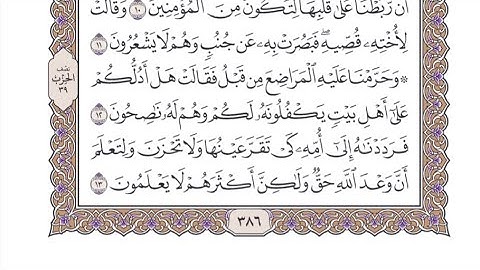 أَن رَّبَطْنَا عَلَىٰ قَلْبِهَا لِتَكُونَ مِنَ الْمُؤْمِنِينَ ١٠ وَقَالَتْ
لِأُخْتِهِ قُصِّيهِ فَبَصُرَتْ بِهِ عَن جُنُبٍ وَهُمْ لَا يَشْعُرُونَ ١١
۞ وَحَرَّمْنَا عَلَيْهِ الْمَرَاضِعَ مِن قَبْلُ فَقَالَتْ هَلْ أَدُلُّكُمْ
عَلَىٰ أَهْلِ بَيْتٍ يَكْفُلُونَهُ لَكُمْ وَهُمْ لَهُ نَاصِحُونَ ١٢
فَرَدَدْنَاهُ إِلَىٰ أُمِّهِ كَيْ تَقَرَّ عَيْنُهَا وَلَا تَحْزَنَ وَلِتَعْلَمَ
أَنَّ وَعْدَ اللَّهِ حَقٌّ وَلَٰكِنَّ أَكْثَرَهُمْ لَا يَعْلَمُونَ ١٣
نصف
الحزب
٣٩
٣٨٦